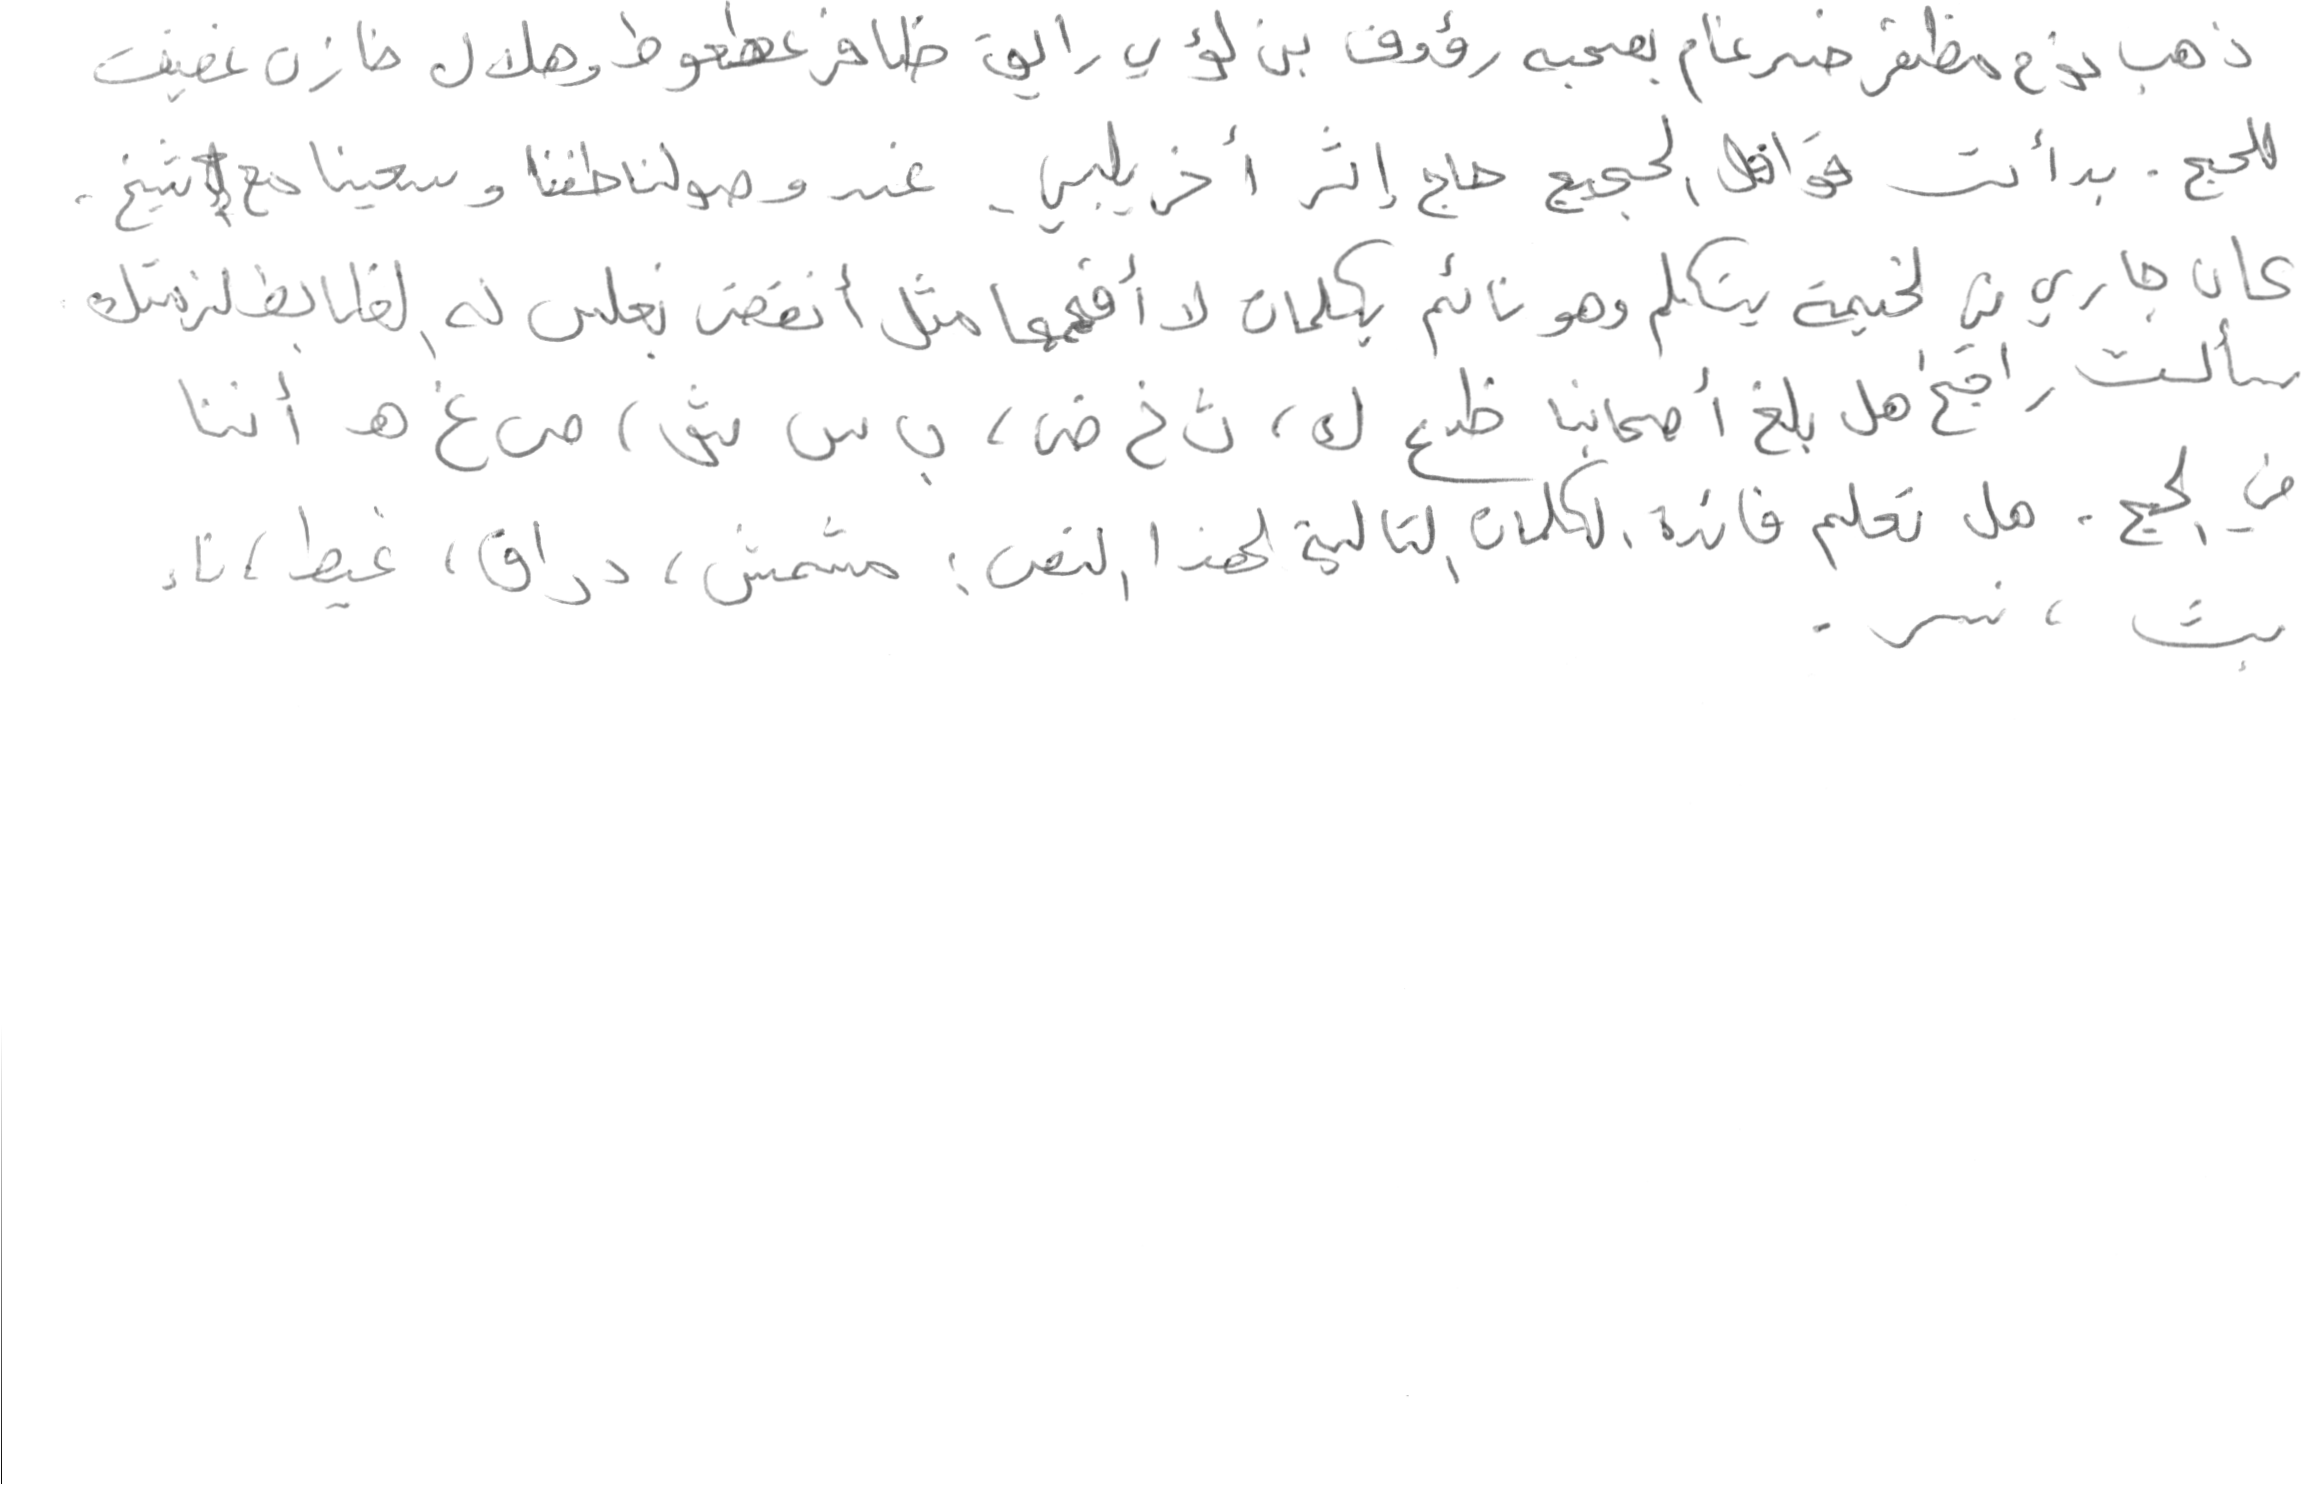 ذهب نوح مظفر ضرغام بصحبه رؤوف بن لؤي رائق ظافر عطعوط وهلال خازن غضيف
للحج. بدأت قوافل الحجيج حاج إثر أخر يلبي. عند وصولنا طفنا وسعينا مع الشيخ.
كان جاري في لخيمة يتكلم وهو نائم بكلمات لا أفهمها مثل
سألت هل بلغ أصحابنا ك، ث خ ض، ب س ش، ص غ هـ أننا
في الحج. هل تعلم فائدة الكلمات التالية لهذا النص: مشمش، دراق، غيظ، ثاء
بث، نسر.